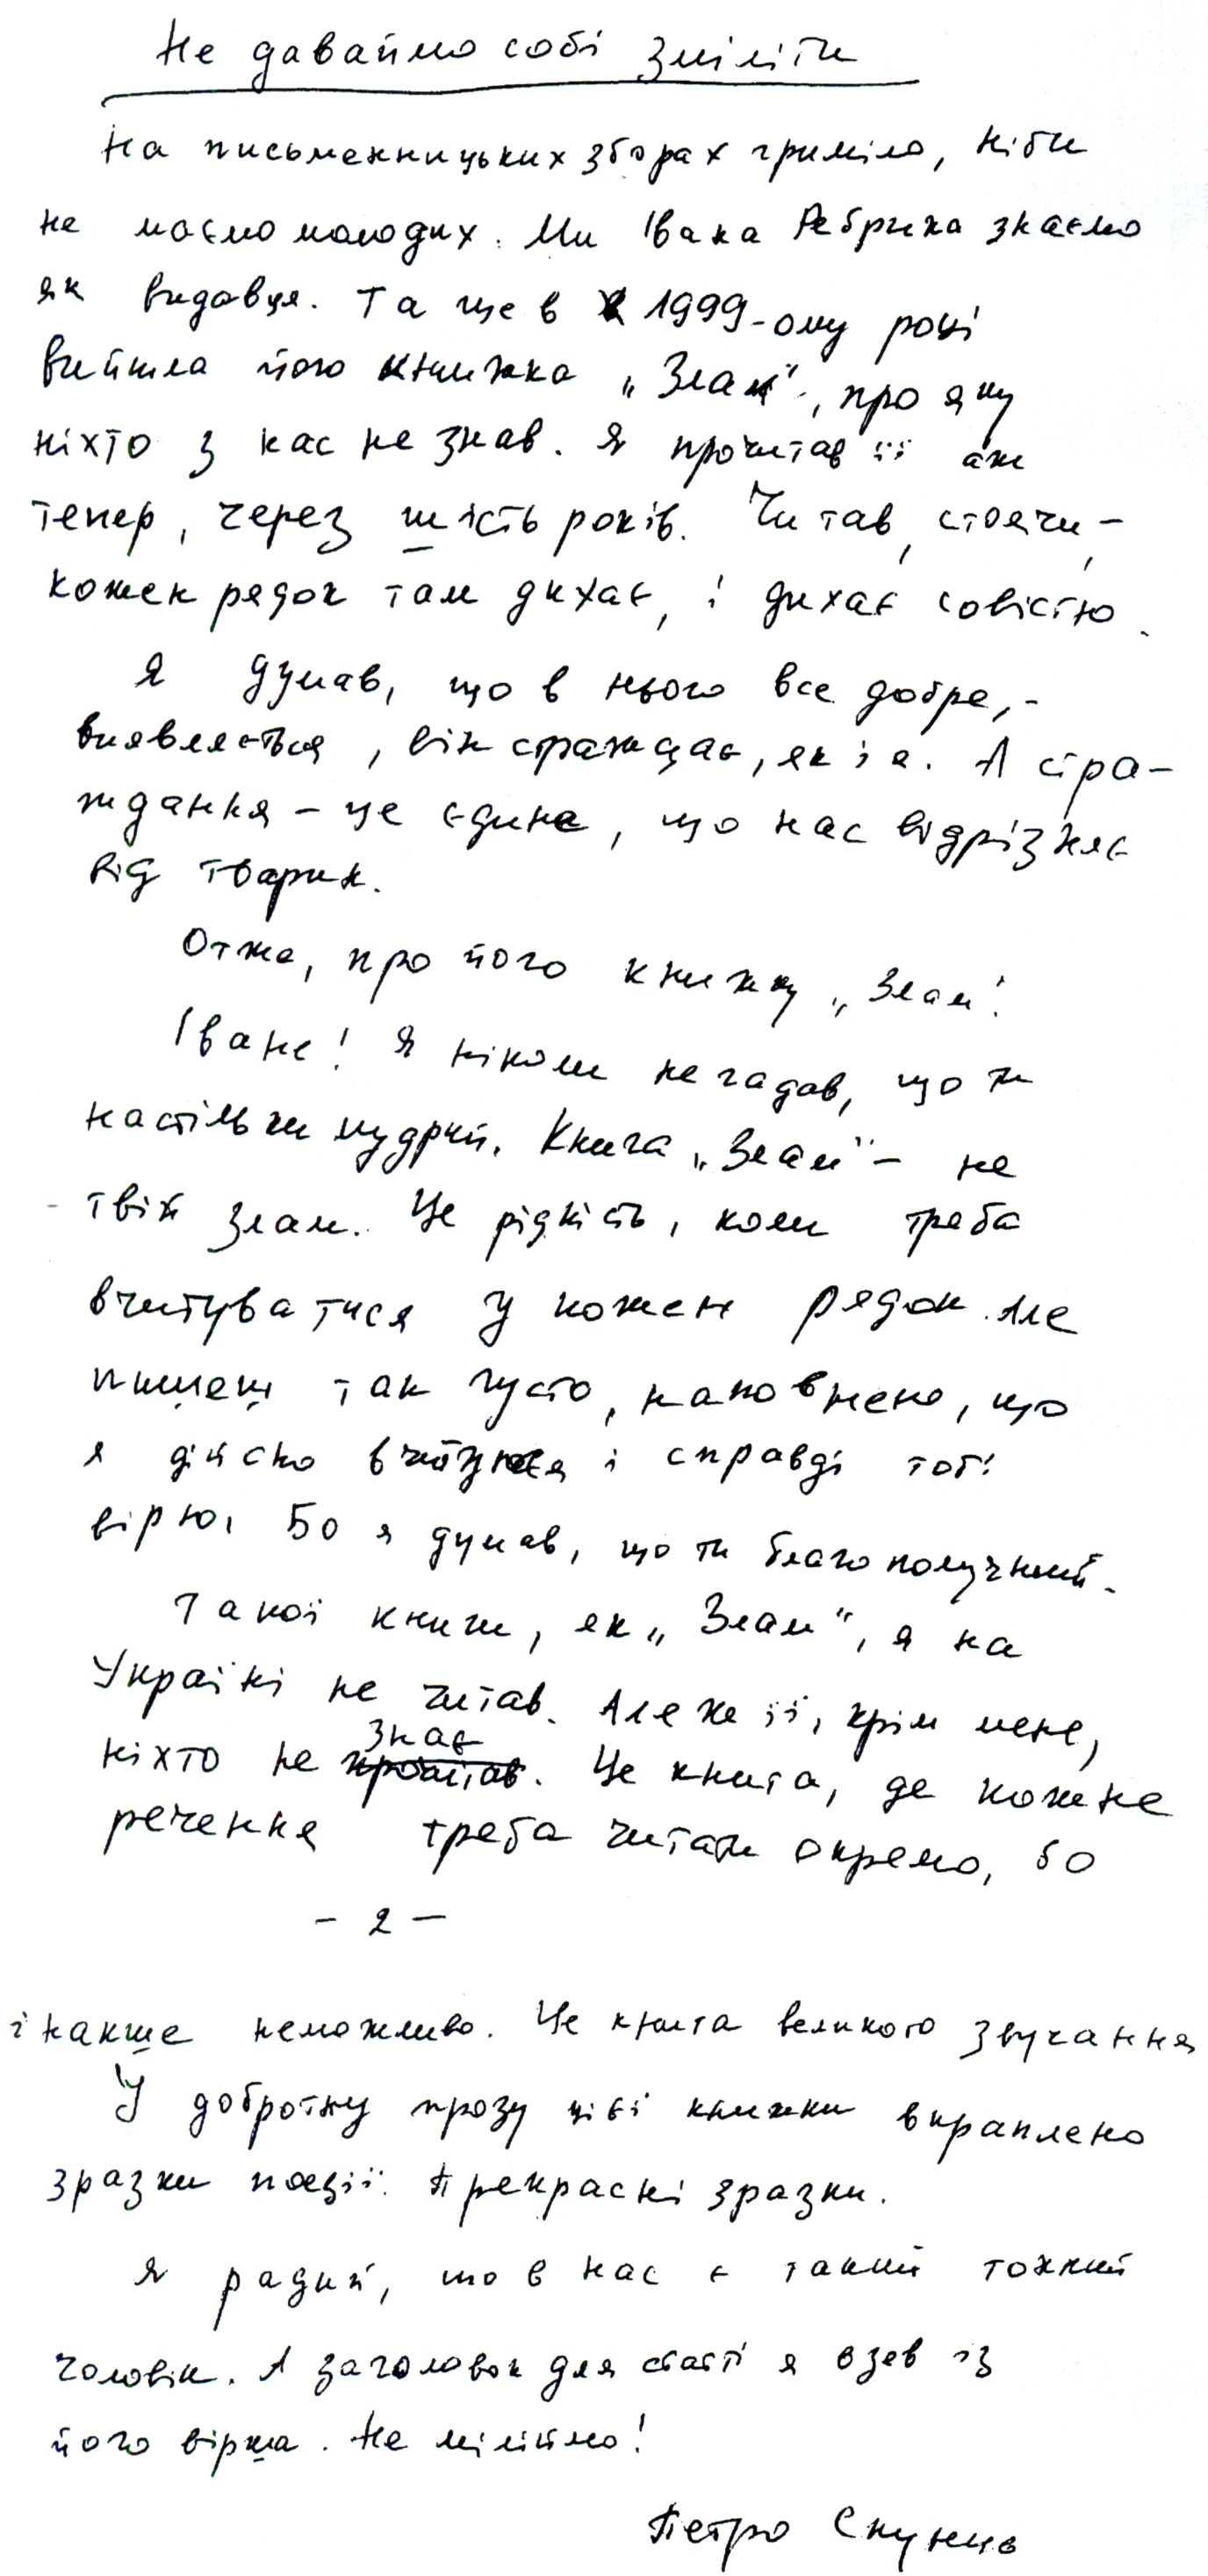 Не даваймо собі зміліти
На письменницьких зборах гриміло, ніби
не маємо молодих. Ми Івана Ребрика знаємо
як видавця. Та ще в 1999-ому році
вийшла його книжка „Злам", про яку
ніхто з нас не знав. Я прочитав її аж
тепер, через шість років. Читав, стоячи, –
кожен рядок там дихає, і дихає совістю.
Я думав, що в нього все добре, -
виявляється, він страждає, як і я. А стра-
ждання – це єдине, що нас відрізняє
від тварин.
Отже, про його книжку „Злам".
Іване! Я ніколи не гадав, що ти
настільки мудрий. Книга „Злам" – не
твій злам. Це рідкість, коли треба
вчитуватися у кожен рядок. Але
пишеш так густо, наповнено, що
я дійсно вчитуюся і справді тобі
вірю. Бо я думав, що ти благополучний.
Такої книги, як „Злам", я на
Україні не читав. Але же її, крім мене,
ніхто не знає. Це книга, де кожне
речення треба читати окремо, бо
- 2 -
інакше неможливо. Це книга великого звучання
У добротну прозу цієї книжки вкраплено
зразки поезії. Прекрасні зразки.
Я радий, що в нас є такий тонкий
чоловік. А заголовок для статті я взяв із
його вірша. Не мілімо!
Петро Скунць